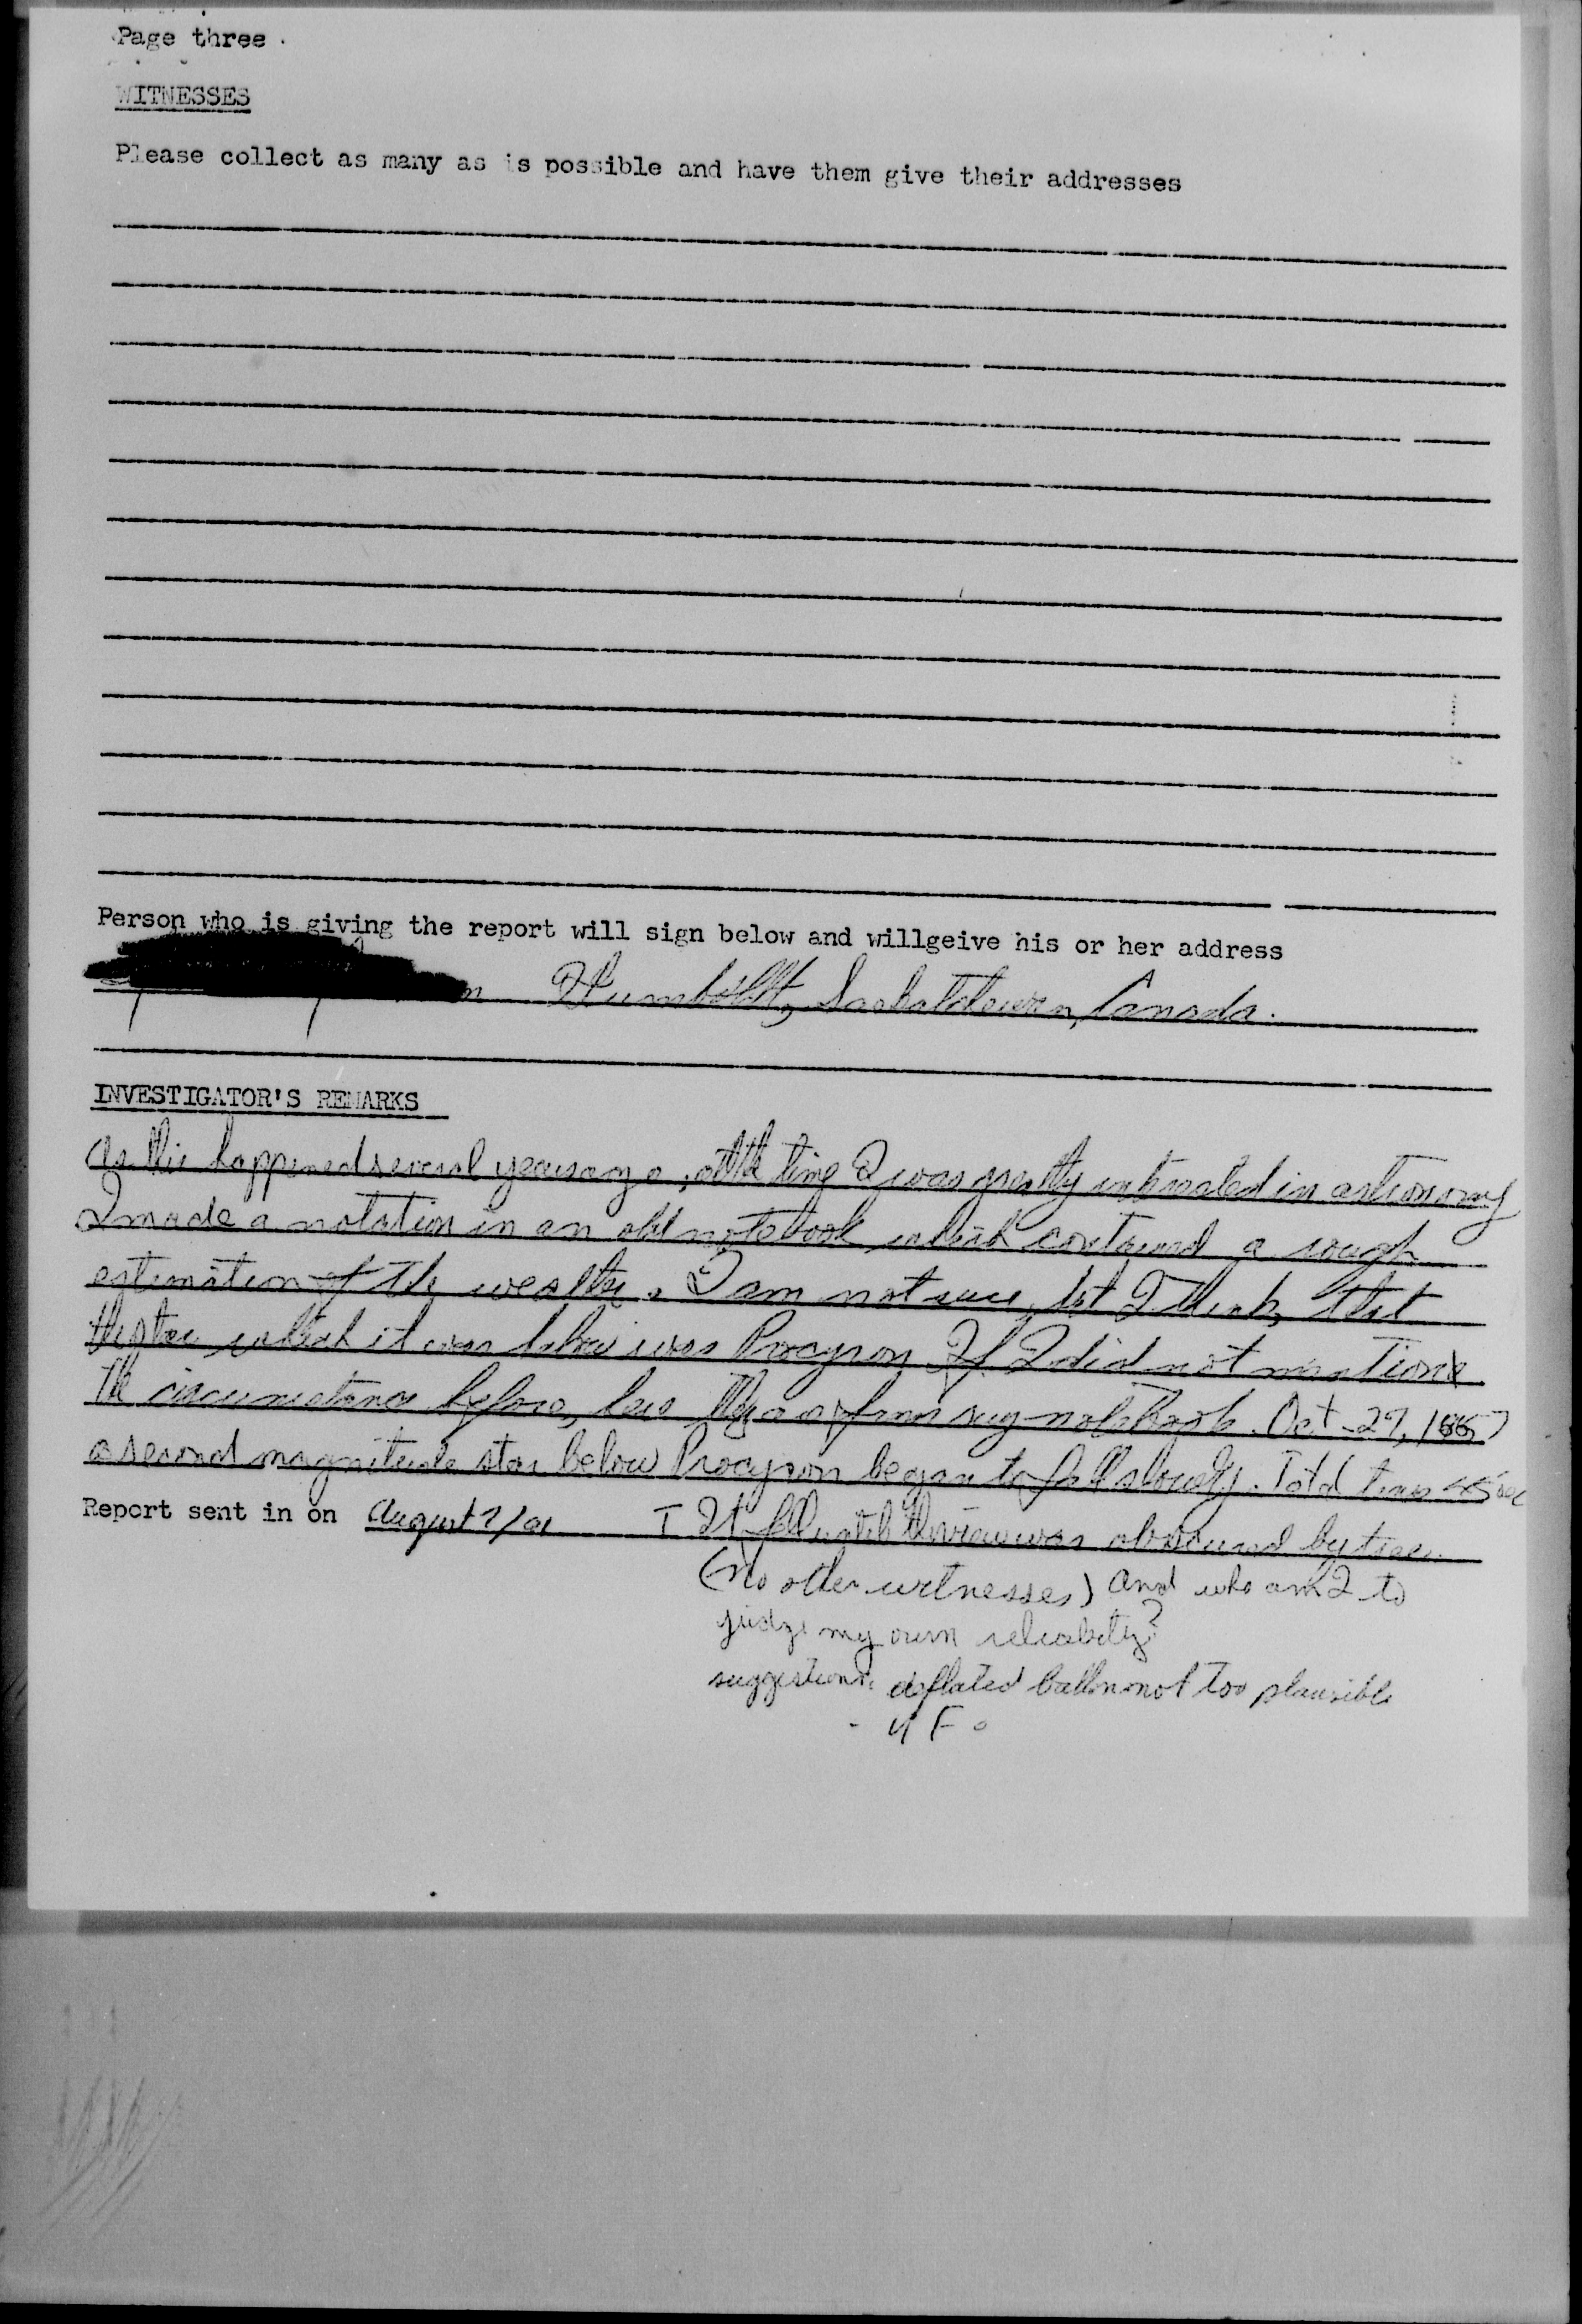 Page three
WITNESSES
Please collect as many as is possible and have them give their addresses
Person who is giving the report will sign below and willgeive his or her address
Humboldt, Saskatchewan, Canada.
INVESTIGATOR'S REMARKS
As this happened several years ago, at the time I was greatly intrested in astronomy
I made a notation in an old notebook which contained a rough
estimation of the weather. I am not sure, but I think, that
the star which it was below was Procyron. If I did not mention
the circumstance before, here they are from my notebook. Oct 27,
a second magnitude star below Procyron began to fall slowly. Total time sec
Report sent in on August
It fell until the view was obscured by trees.
(no other witnesses) and who am I to
judge my own reliability?
suggestions. deflated ballon not too plausible
- U F O